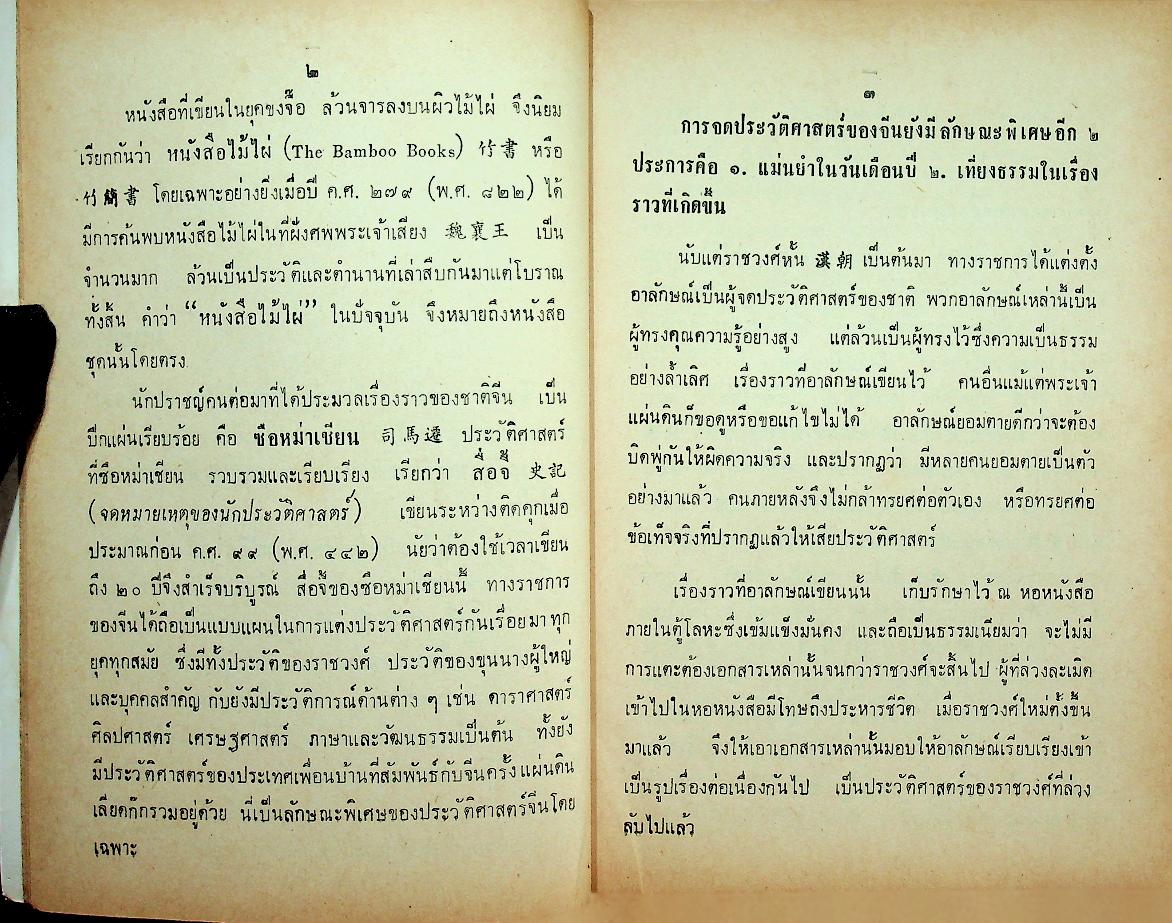 ๒
หนังสือที่เขียนในยุคขงจื๊อ ล้วนจารลงบนผิวไม้ไผ่ จึงนิยม
เรียกกันว่า หนังสือไม้ไผ่ (The Bamboo Books) 竹書 หรือ
竹簡書 โดยเฉพาะอย่างยิ่งเมื่อปี ค.ศ. ๒๗๙ (พ.ศ. ๘๒๒) ได้
มีการค้นพบหนังสือไม้ไผ่ในที่ฝังศพพระเจ้าเสียง 魏襄王 เป็น
จำนวนมาก ล้วนเป็นประวัติและตำนานที่เล่าสืบกันมาแต่โบราณ
ทั้งสิ้น คำว่า “หนังสือไม้ไผ่” ในปัจจุบัน จึงหมายถึงหนังสือ
ชุดนั้นโดยตรง
นักปราชญ์คนต่อมาที่ได้ประมวลเรื่องราวของชาติจีน เป็น
ปึกแผ่นเรียบร้อย คือ ซือหม่าเชียน 司馬遷 ประวัติศาสตร์
ที่ซือหม่าเชียน รวบรวมและเรียบเรียง เรียกว่า สื่อจี้ 史記
(จดหมายเหตุของนักประวัติศาสตร์) เขียนระหว่างติดคุกเมื่อ
ประมาณก่อน ค.ศ. ๙๙ (พ.ศ. ๔๔๒) นัยว่าต้องใช้เวลาเขียน
ถึง ๒๐ ปีจึงสำเร็จบริบูรณ์ สื่อจี้ของซือหม่าเชียนนี้ ทางราชการ
ของจีนได้ถือเป็นแบบแผนในการแต่งประวัติศาสตร์กันเรื่อยมาทุก
ยุคทุกสมัย ซึ่งมีทั้งประวัติของราชวงศ์ ประวัติของขุนนางผู้ใหญ่
และบุคคลสำคัญ กับยังมีประวัติการณ์ด้านต่าง ๆ เช่น ดาราศาสตร์
ศิลปศาสตร์ เศรษฐศาสตร์ ภาษาและวัฒนธรรมเป็นต้น ทั้งยัง
มีประวัติศาสตร์ของประเทศเพื่อนบ้านที่สัมพันธ์กับจีนครั้งแผ่นดิน
เลียดก๊กรวมอยู่ด้วย นี่เป็นลักษณะพิเศษของประวัติศาสตร์จีนโดย
เฉพาะ
๓
การจดประวัติศาสตร์ของจีนยังมีลักษณะพิเศษอีก ๒
ประการคือ ๑. แม่นยำในวันเดือนปี ๒. เที่ยงธรรมในเรื่อง
ราวที่เกิดขึ้น
นับแต่ราชวงศ์หั้น 漢朝 เป็นต้นมา ทางราชการได้แต่งตั้ง
อาลักษณ์เป็นผู้จดประวัติศาสตร์ของชาติ พวกอาลักษณ์เหล่านี้เป็น
ผู้ทรงคุณความรู้อย่างสูง แต่ล้วนเป็นผู้ทรงไว้ซึ่งความเป็นธรรม
อย่างล้ำเลิศ เรื่องราวที่อาลักษณ์เขียนไว้ คนอื่นแม้แต่พระเจ้า
แผ่นดินก็ขอดูหรือขอแก้ไขไม่ได้ อาลักษณ์ยอมตายดีกว่าจะต้อง
บิดพู่กันให้ผิดความจริง และปรากฏว่า มีหลายคนยอมตายเป็นตัว
อย่างมาแล้ว คนภายหลังจึงไม่กล้าทรยศต่อตัวเอง หรือทรยศต่อ
ข้อเท็จจริงที่ปรากฏแล้วให้เสียประวัติศาสตร์
เรื่องราวที่อาลักษณ์เขียนนั้น เก็บรักษาไว้ ณ หอหนังสือ
ภายในตู้โลหะซึ่งเข้มแข็งมั่นคง และถือเป็นธรรมเนียมว่า จะไม่มี
การแตะต้องเอกสารเหล่านั้นจนกว่าราชวงศ์จะสิ้นไป ผู้ที่ล่วงละเมิด
เข้าไปในหอหนังสือมีโทษถึงประหารชีวิต เมื่อราชวงศ์ใหม่ตั้งขึ้น
มาแล้ว จึงให้เอาเอกสารเหล่านั้นมอบให้อาลักษณ์เรียบเรียงเข้า
เป็นรูปเรื่องต่อเนื่องกันไป เป็นประวัติศาสตร์ของราชวงศ์ที่ล่วง
ลับไปแล้ว